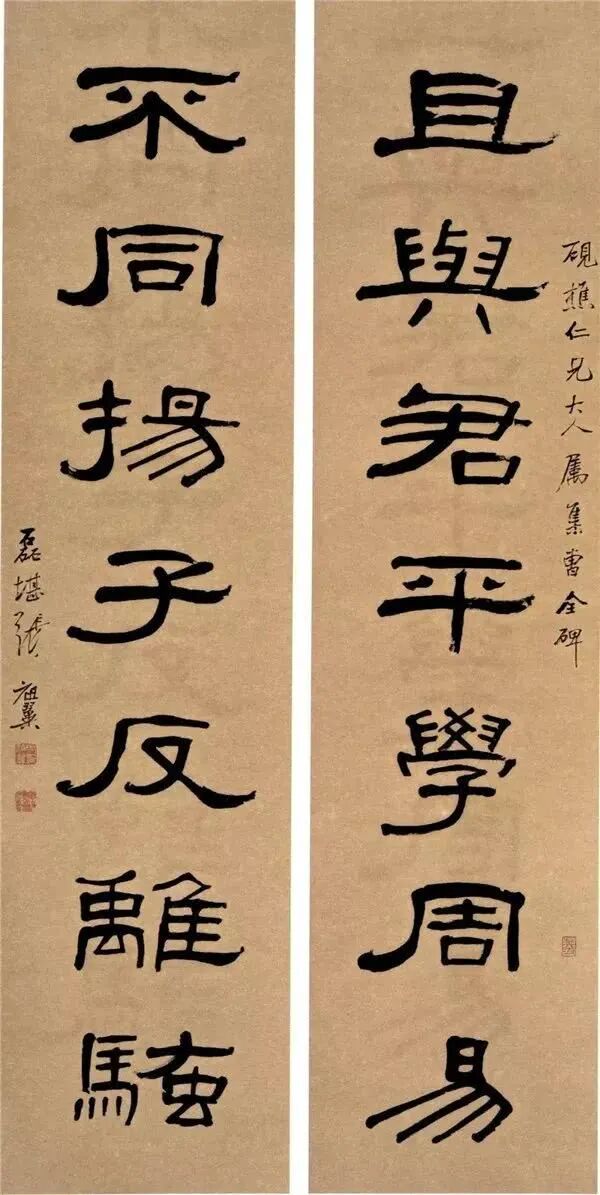 硯樵仁兄大人属集曹全碑
且與君平學周易
不同揚子反離騷
磊堪張祖翼